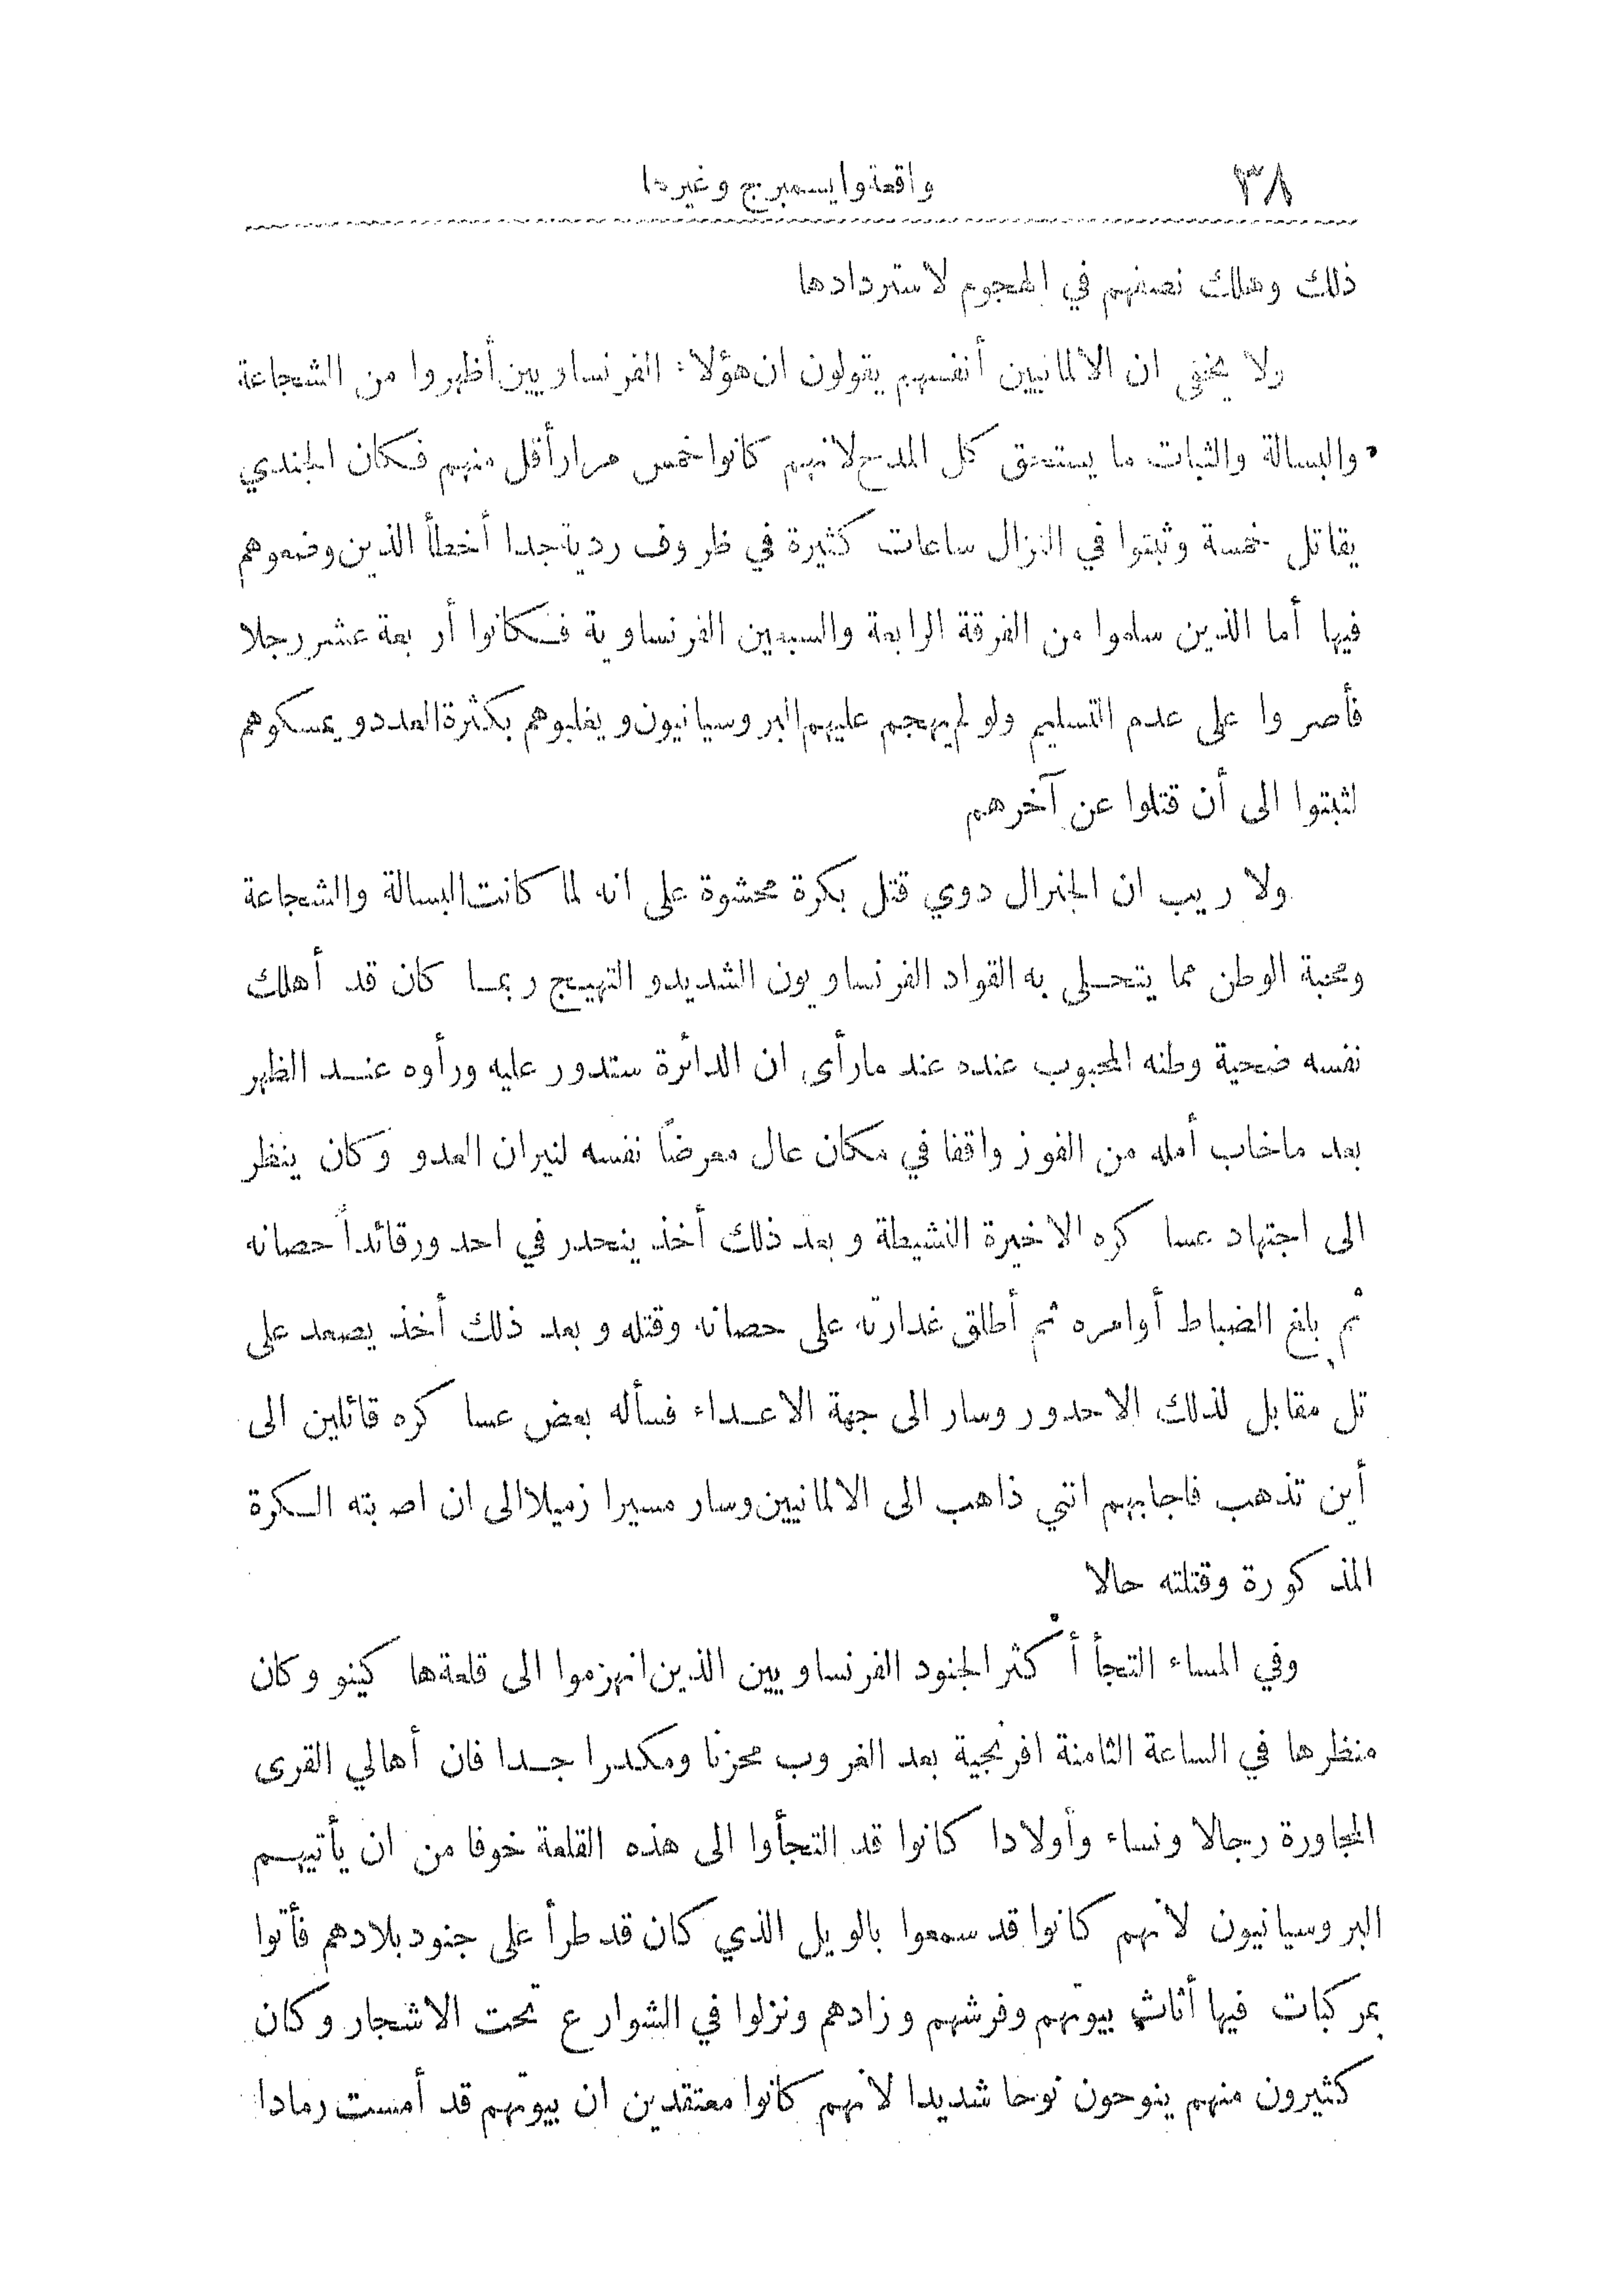 ٣٨
واقعة وايسمبرج وغيرها
ذلك وهلك نصفهم في الهجوم لاستردادها
ولا يخفى ان الالمانيين أنفسهم يقولون ان هؤلاء الفرنساويين أظهروا من الشجاعة
والبسالة والثبات ما يستحق كل المدح لانهم كانوا خمس مرار أقل منهم فكان الجندي
يقاتل خمسة وثبتوا في النزال ساعات كثيرة في ظروف ردية جدا أخطأ الذين وضعوهم
فيها أما الذين سلموا من الفرقة الرابعة والسبعين الفرنساوية فكانوا أربعة عشر رجلا
فأصروا على عدم التسليم ولو لم يهجم عليهم البروسيانيون ويغلبوهم بكثرة العدد ويمسكوهم
لثبتوا الى أن قتلوا عن آخرهم
ولا ريب ان الجنرال دوي قتل بكرة محشوة على انه لما كانت البسالة والشجاعة
ومحبة الوطن مما يتحلى به القواد الفرنساويون الشديدو التهيج ربما كان قد أهلك
نفسه ضحية وطنه المحبوب عنده عند ما رأى ان الدائرة ستدور عليه ورأوه عند الظهر
بعد ما خاب أمله من الفوز واقفا في مكان عال معرضاً نفسه لنيران العدو وكان ينظر
الى اجتهاد عساكره الاخيرة النشيطة وبعد ذلك أخذ ينحدر في احدور قائداً حصانه
ثم بلغ الضباط أوامره ثم أطلق غدارته على حصانه وقتله وبعد ذلك أخذ يصعد على
تل مقابل لذلك الاحدور وسار الى جهة الاعداء فسأله بعض عساكره قائلين الى
أين تذهب فاجابهم انني ذاهب الى الالمانيين وسار مسيرا زميلا الى ان اصابته الكرة
المذكورة وقتلته حالا
وفي المساء التجأ أكثر الجنود الفرنساويين الذين انهزموا الى قلعة هاكينو وكان
منظرها في الساعة الثامنة افرنجية بعد الغروب محزنا ومكدرا جدا فان أهالي القرى
المجاورة رجالا ونساء وأولادا كانوا قد التجأوا الى هذه القلعة خوفا من ان يأتيهم
البروسيانيون لانهم كانوا قد سمعوا بالويل الذي كان قد طرأ على جنود بلادهم فأتوا
بمركبات فيها أثاث بيوتهم وفرشهم وزادهم ونزلوا في الشوارع تحت الاشجار وكان
كثيرون منهم ينوحون نوحا شديدا لانهم كانوا معتقدين ان بيوتهم قد أمست رمادا